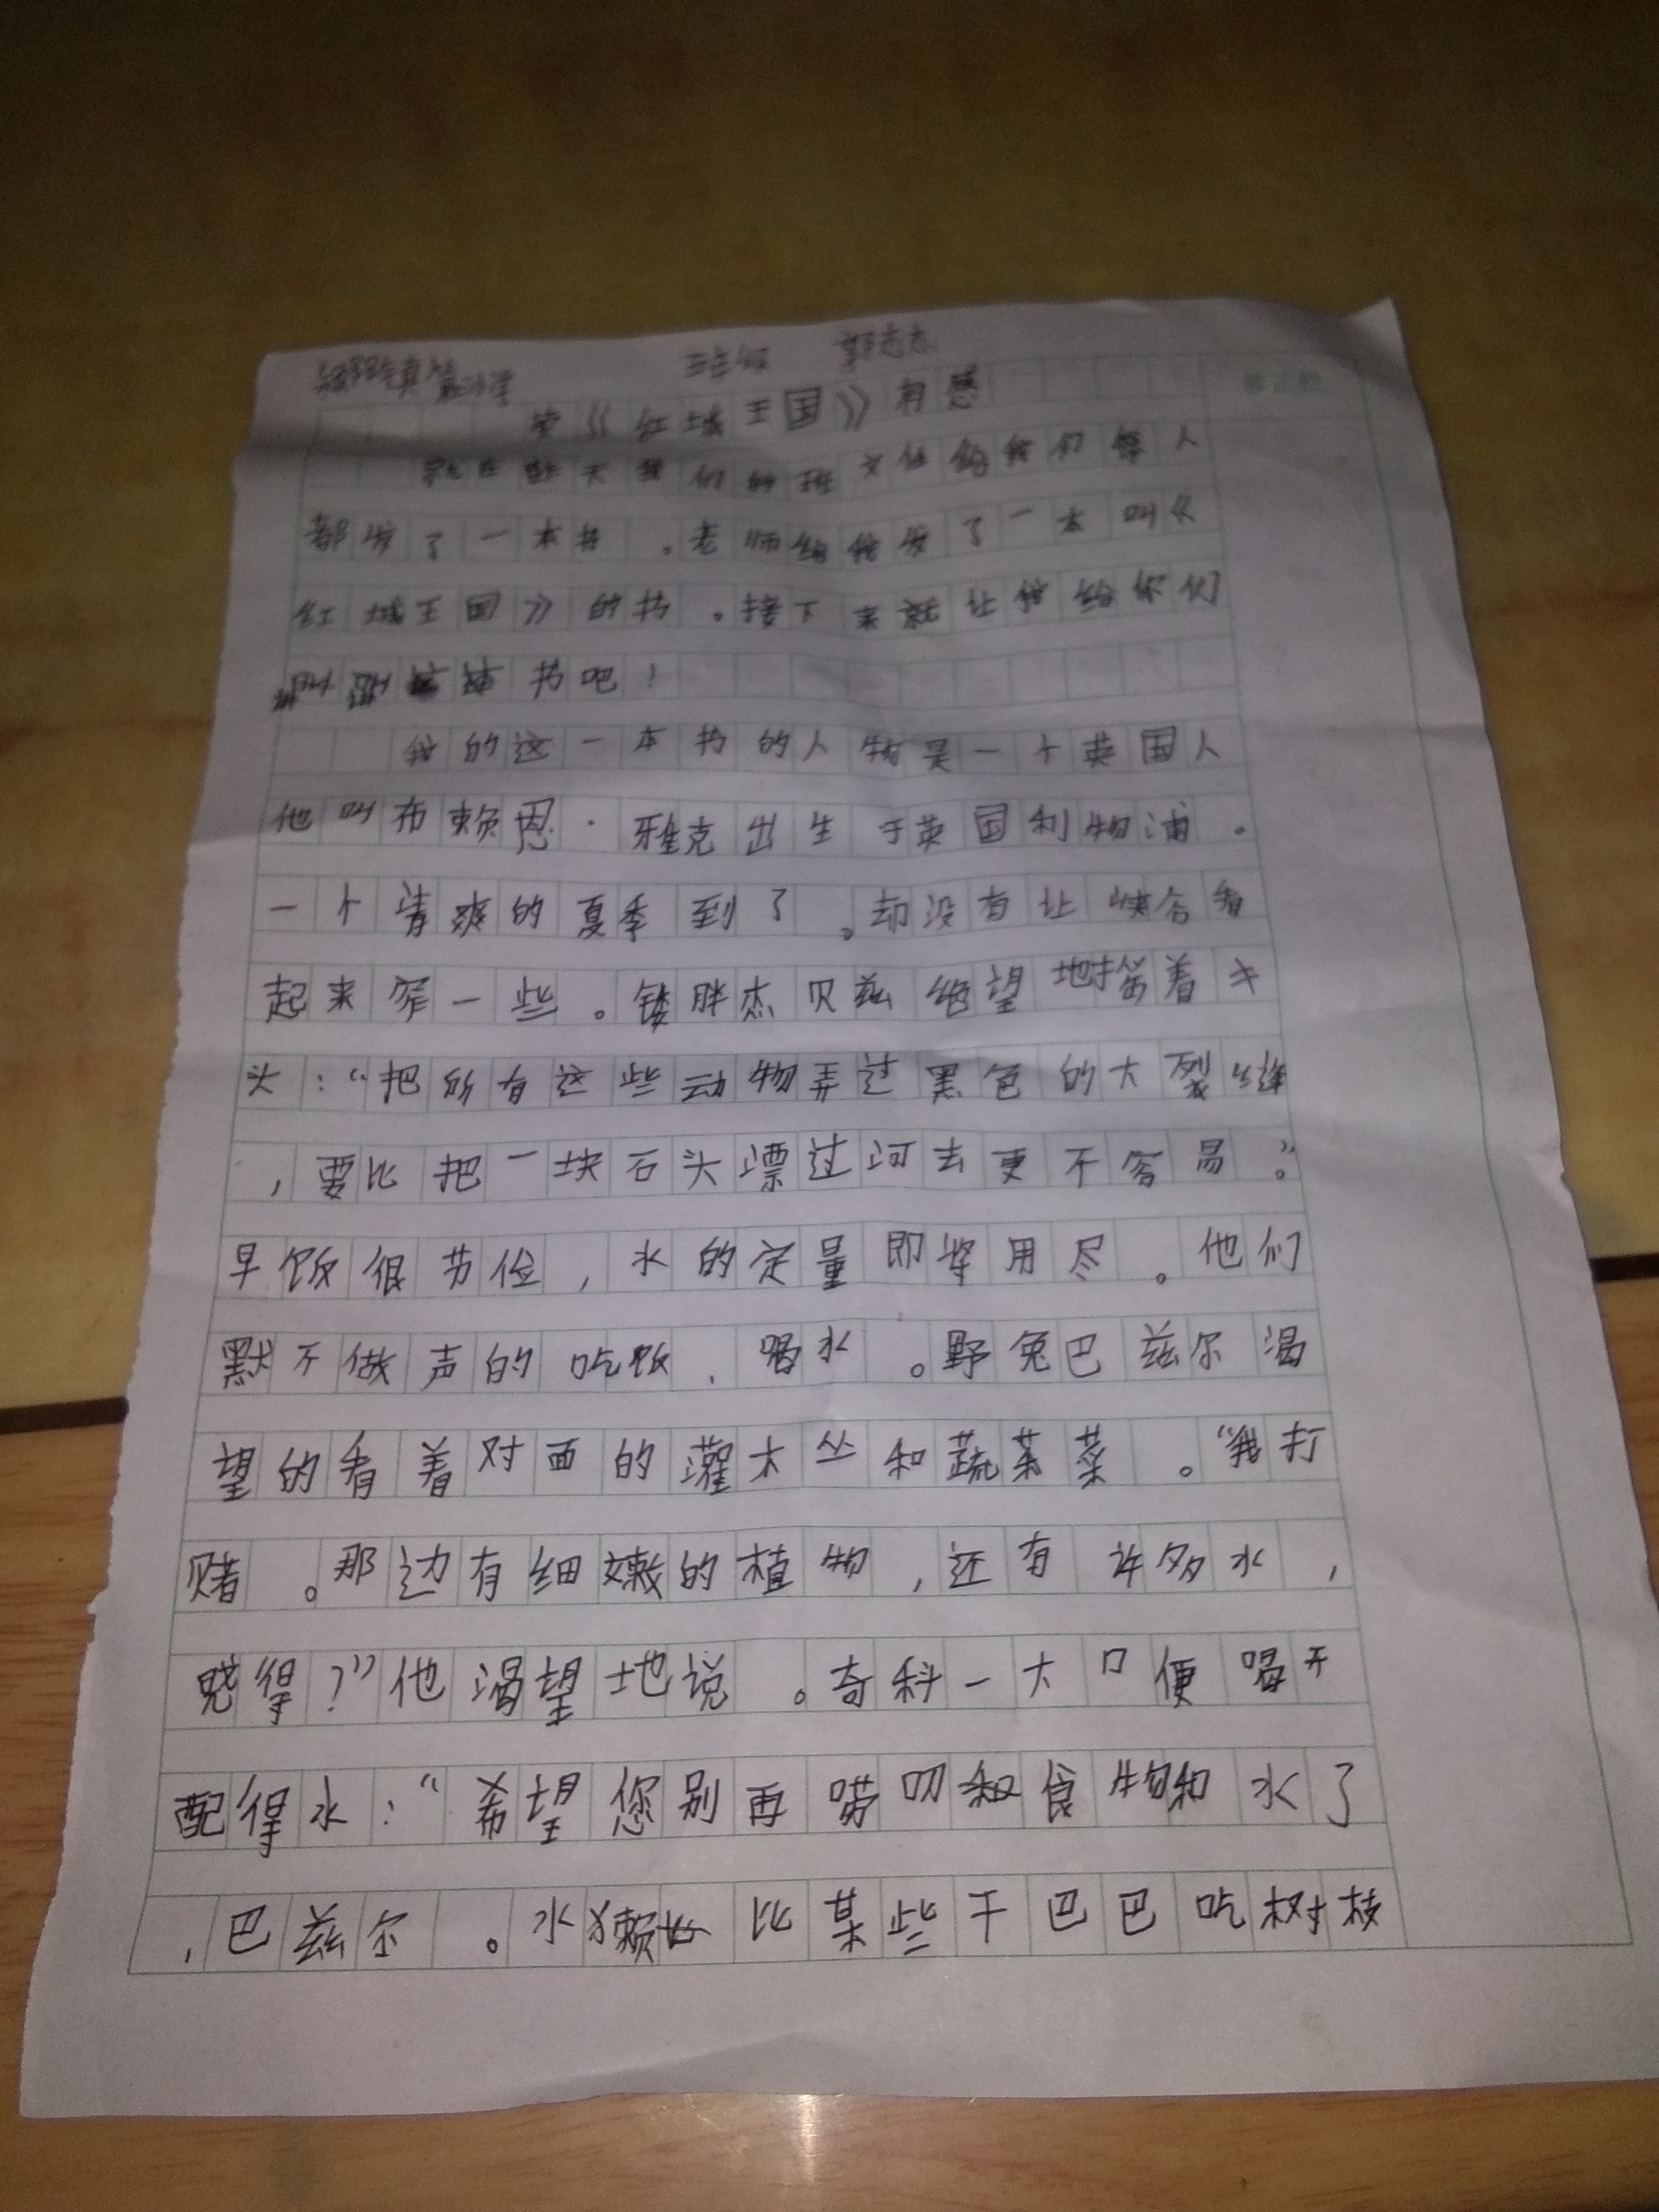 《红城王国》有感
就在昨天我们的班 给我们每人
都发了一本书。老师给我发了一本叫《
红城王国》的书。接下来就让我给你们
书吧！
我的这一本书的人物是一个英国人
他叫布赖恩·雅克出生于英国利物浦。
一个清爽的夏季到了。却没有让峡谷看
起来窄一些。镂胖杰贝兹绝望地摇着
头：“把所有这些动物弄过黑色的大裂缝
，要比把一块石头漂过河去更不容易。”
早饭很节俭，水的定量即将用尽。他们
默不做声的吃饭，喝水。野兔巴兹尔渴
望的看着对面的灌木丛和蔬菜。“我打
赌。那边有细嫩的植物，还有许多水，
晓得？”他渴望地说。奇科一大口便喝干
配得水：“希望您别再唠叨和食物和水了
，巴兹尔。水獭 比某些干巴巴吃树枝